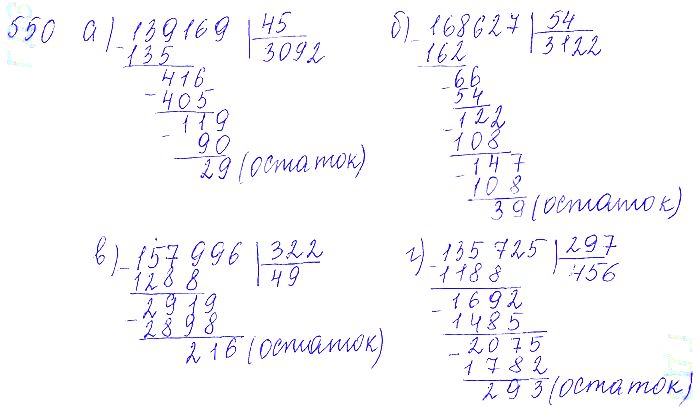 550 а) 139169 | 45
- 135 3092
416
- 405
119
- 90
29 (остаток)
б) - 168627 | 54
162 3122
- 66
54
- 122
108
- 147
108
39 (остаток)
в) - 157996 | 322
1288 49
- 2919
2898
216 (остаток)
г) - 135725 | 297
1188 456
- 1692
1485
- 2075
1782
293 (остаток)